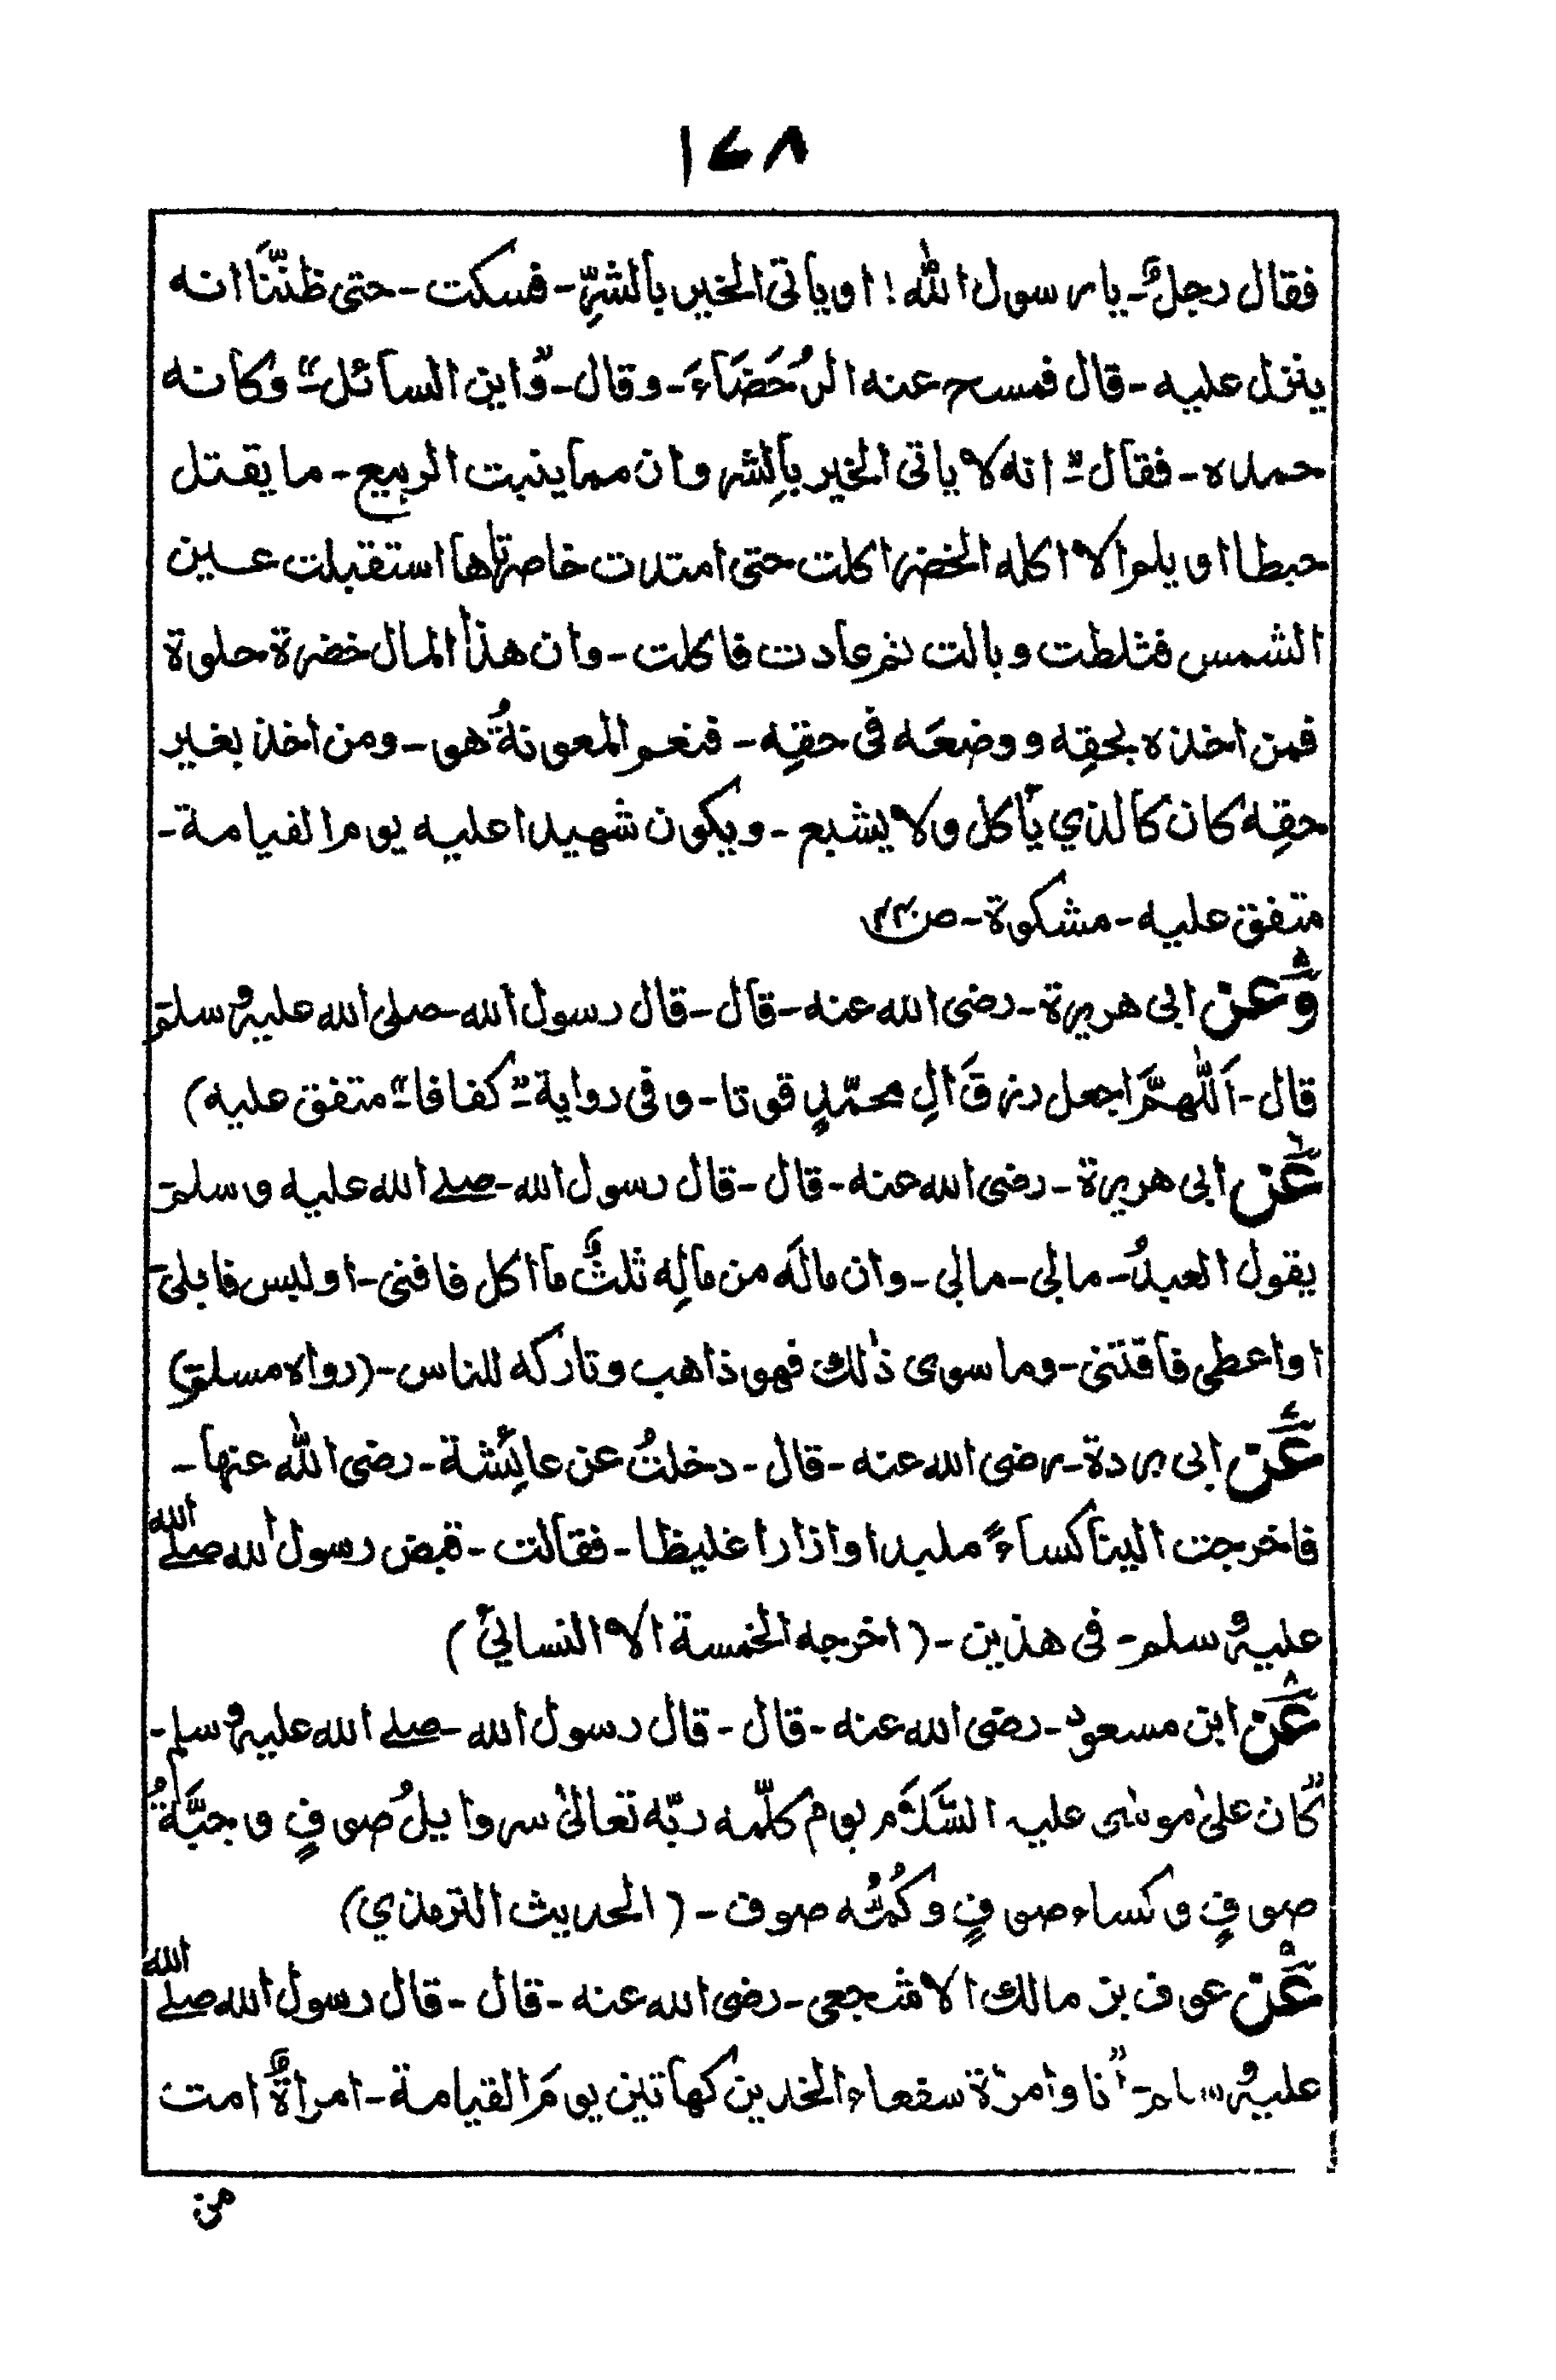 ۱۷۸
فقال رجلٌ- یا رسول اللّٰه! او یاتی الخیر بالشرِّ- فسکت- حتی ظننَّا انه
ینزل علیه- قال فمسح عنه الرُحَضَاءَ- وقال- "و این السائل"- وکانه
حمده- فقال- "انه لا یاتی الخیر بالشر وان مما ینبت الربیع- ما یقتل
حبطا او یلم الا اکله الخضر اکلت حتی امتدت خاصرتاها استقبلت عین
الشمس فثلطت وبالت ثم عادت فاکلت- وان هذا المال خضرة حلوة
فمن اخذه بحقِه ووضعَه فی حقِه- فنعم المعونةُ هو- ومن اخذ بغیر
حقِه کان کالذي یأکل ولا یشبع- ویکون شهیدا علیه یوم القیامة-
متفق علیه- مشکوة- ص
وَعن ابی هریرة- رضی الله عنه- قال- قال رسول الله- صلی الله علیه وسلم
قال- اَللّٰهمَّ اجعل رزقَ اٰلِ محمّدٍ قوتا- وفی روایة- "کفافا"- متفق علیه)
عن ابی هریرة- رضی الله عنه- قال- قال رسول الله- صلے الله علیه وسلم-
یقول العبدُ- مالی- مالی- وان مالَه من مالِه ثلثٌ ما اکل فافنی- او لبس فابلی-
او اعطی فاقتنی- وما سوی ذٰلك فهو ذاهب وتارکه للناس- (رواه مسلم)
عن ابی بردة- رضی الله عنه- قال- دخلتُ عن عائِشة- رضی اللّٰه عنها-
فاخرجت الینا کساءً ملبدا وازارا غلیظا- فقالت- قبض رسول الله صلے الله
علیه وسلم- فی هذین- (اخرجه الخمسة الا النسائي)
عن ابن مسعود- رضی الله عنه- قال- قال رسول الله- صلے الله علیه وسلم-
"کان علیٰ موسٰی علیه السَّلَام یوم کلّمه ربّه تعالیٰ سراویلُ صوفٍ و جبَّةُ
صوفٍ وکساء صوفٍ وکُمُّه صوف- (الحدیث الترمذي)
عن عوف بن مالك الاشجعی- رضی الله عنه- قال- قال رسول الله صلے الله
علیه وسلم- "انا وامرٰاة سفعاء الخدین کهاتین یومَ القیامة- امراةٌ امت
من